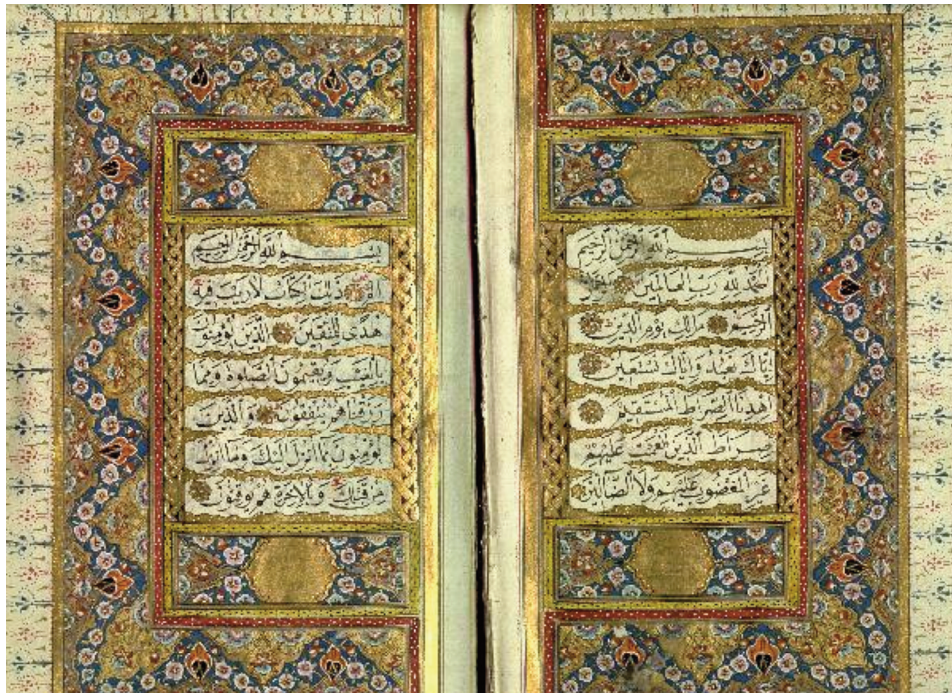 بِسْمِ اللَّهِ الرَّحْمَٰنِ الرَّحِيمِ
الْحَمْدُ لِلَّهِ رَبِّ الْعَالَمِينَ الرَّحْمٰنِ
الرَّحِيمِ مَالِكِ يَوْمِ الدِّينِ
إِيَّاكَ نَعْبُدُ وَإِيَّاكَ نَسْتَعِينُ
اِهْدِنَا الصِّرَاطَ الْمُسْتَقِيمَ
صِرَاطَ الَّذِينَ أَنْعَمْتَ عَلَيْهِمْ
غَيْرِ الْمَغْضُوبِ عَلَيْهِمْ وَلَا الضَّالِّينَ
بِسْمِ اللَّهِ الرَّحْمَٰنِ الرَّحِيمِ
الٓمٓ ذٰلِكَ الْكِتَابُ لَا رَيْبَ فِيهِ
هُدًى لِلْمُتَّقِينَ الَّذِينَ يُؤْمِنُونَ
بِالْغَيْبِ وَيُقِيمُونَ الصَّلٰوةَ وَمِمَّا
رَزَقْنَاهُمْ يُنْفِقُونَ وَالَّذِينَ
يُؤْمِنُونَ بِمَا أُنْزِلَ إِلَيْكَ وَمَا أُنْزِلَ
مِنْ قَبْلِكَ وَبِالْآخِرَةِ هُمْ يُوقِنُونَ